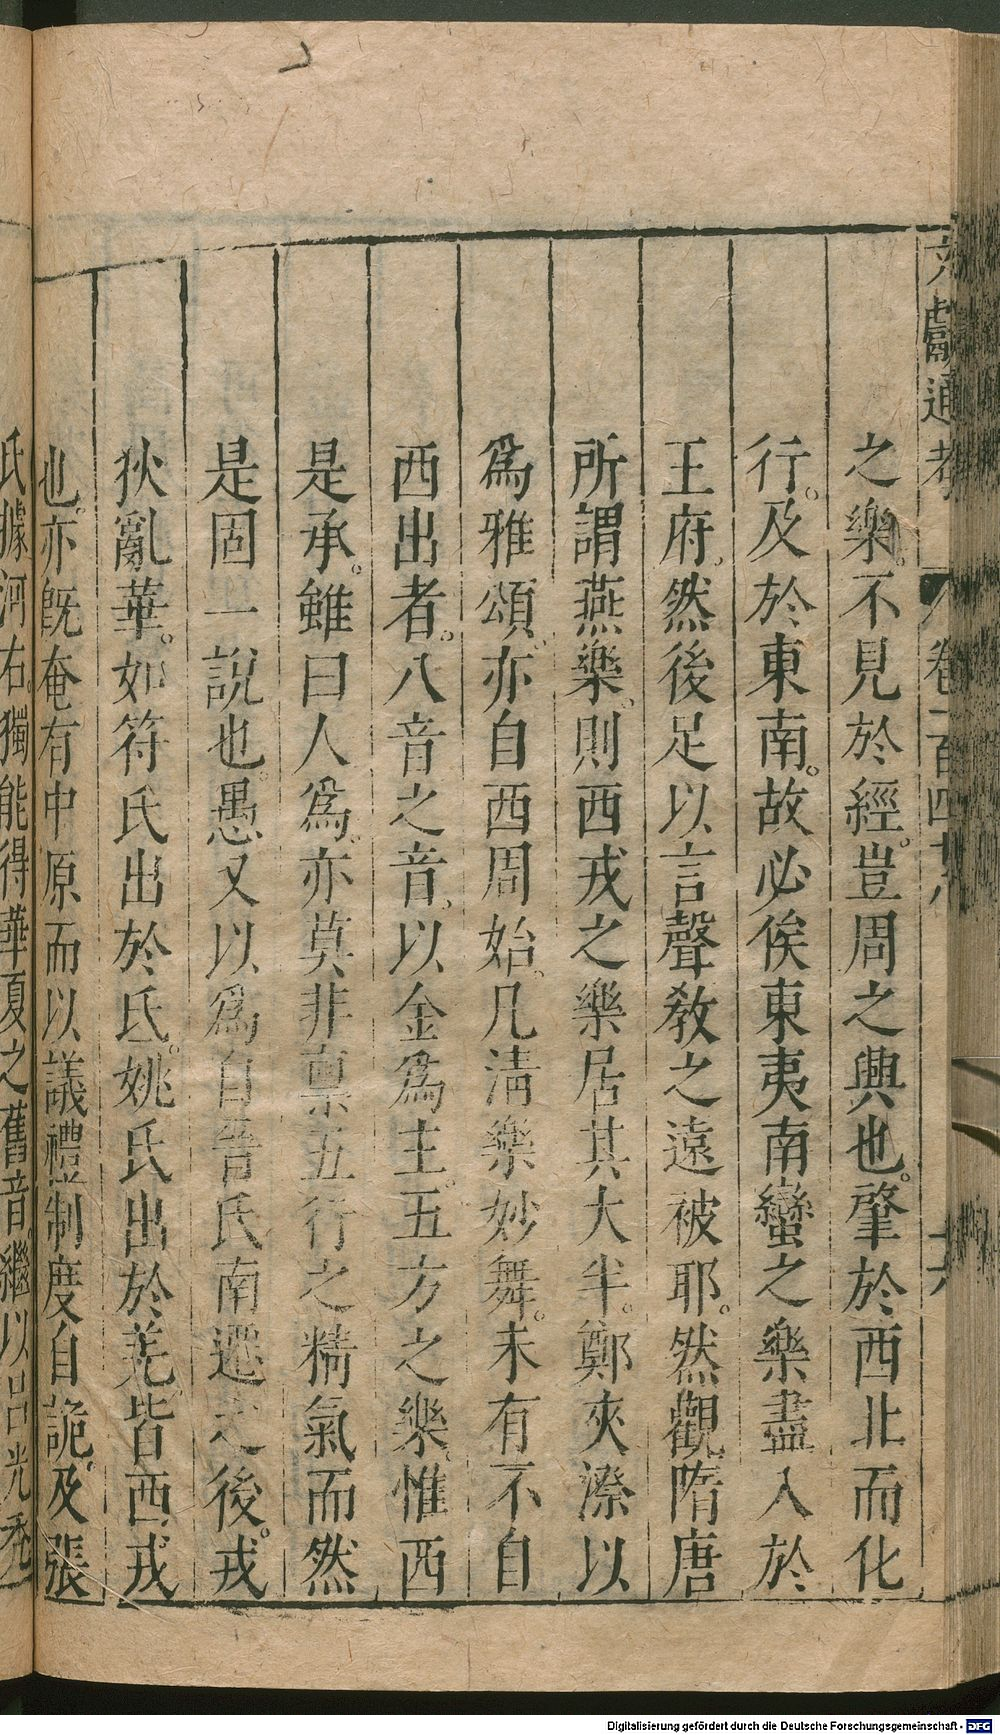 文獻通考 卷一百四十八 十六
之樂。不見於經。豈周之興也。肇於西北而化
行。及於東南。故必俟東夷南蠻之樂盡入於
王府。然後足以言聲教之遠被耶。然觀隋唐
所謂燕樂。則西戎之樂居其大半。鄭夾漈以
爲雅頌。亦自西周始。凡淸樂妙舞。未有不自
西出者。八音之音。以金爲主。五方之樂。惟西
是承。雖曰人爲。亦莫非禀五行之精氣而然
是固一說也。愚又以爲自晉氏南遷之後。戎
狄亂華。如符氏出於氐。姚氏出於羌。皆西戎
也。亦旣奄有中原。而以議禮制度自詭。及張
氏據河右。獨能得華夏之舊音。繼以呂光禿
Digitalisierung gefördert durch die Deutsche Forschungsgemeinschaft - DFG